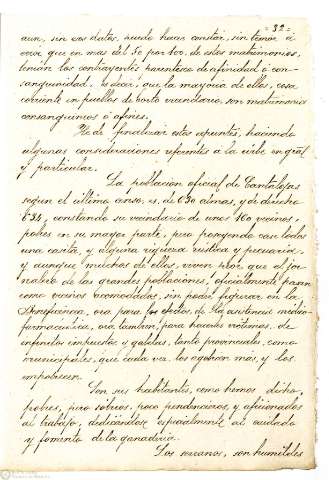 = 32 =
aun, sin esos datos, puedo hacer constar, sin temor á
errar que en más del 50 por 100, de estos matrimonios,
tenían los contrayentes parentesco de afinidad ó con-
sanguinidad. Es decir, que la mayoría de ellos, cosa
corriente en pueblos de corto vecindario, son matrimonios
consanguineos ó afines.
He de finalizar estos apuntes, haciendo
algunas consideraciones referentes a la urbe en gral
y particular.
La población oficial de Cantalojas
segun el último censo, es, de 630 almas, y de derecho
638, constando su vecindario de unos 160 vecinos,
pobres en su mayor parte, pero poseyendo casi todos
una casita, y alguna riqueza rústica y pecuaria,
y aunque muchos de ellos, viven peor, que el jor-
nalero de las grandes poblaciones, oficialmente pasan
como vecinos acomodados, sin poder figurar en la
Beneficencia, ora para los efectos, de la asistencia médico
farmaceutica, ora tambien, para hacerles víctimas, de
infinitos impuestos y gabelas, tanto provinciales, como
municipales, que cada vez los agobian más, y los
empobrecen.
Son sus habitantes, como hemos dicho
pobres, pero sobrios, poco pendencieros, y aficionados
al trabajo, dedicándose especialmente al cuidado
y fomento de la ganadería.
Los serranos, son humildes